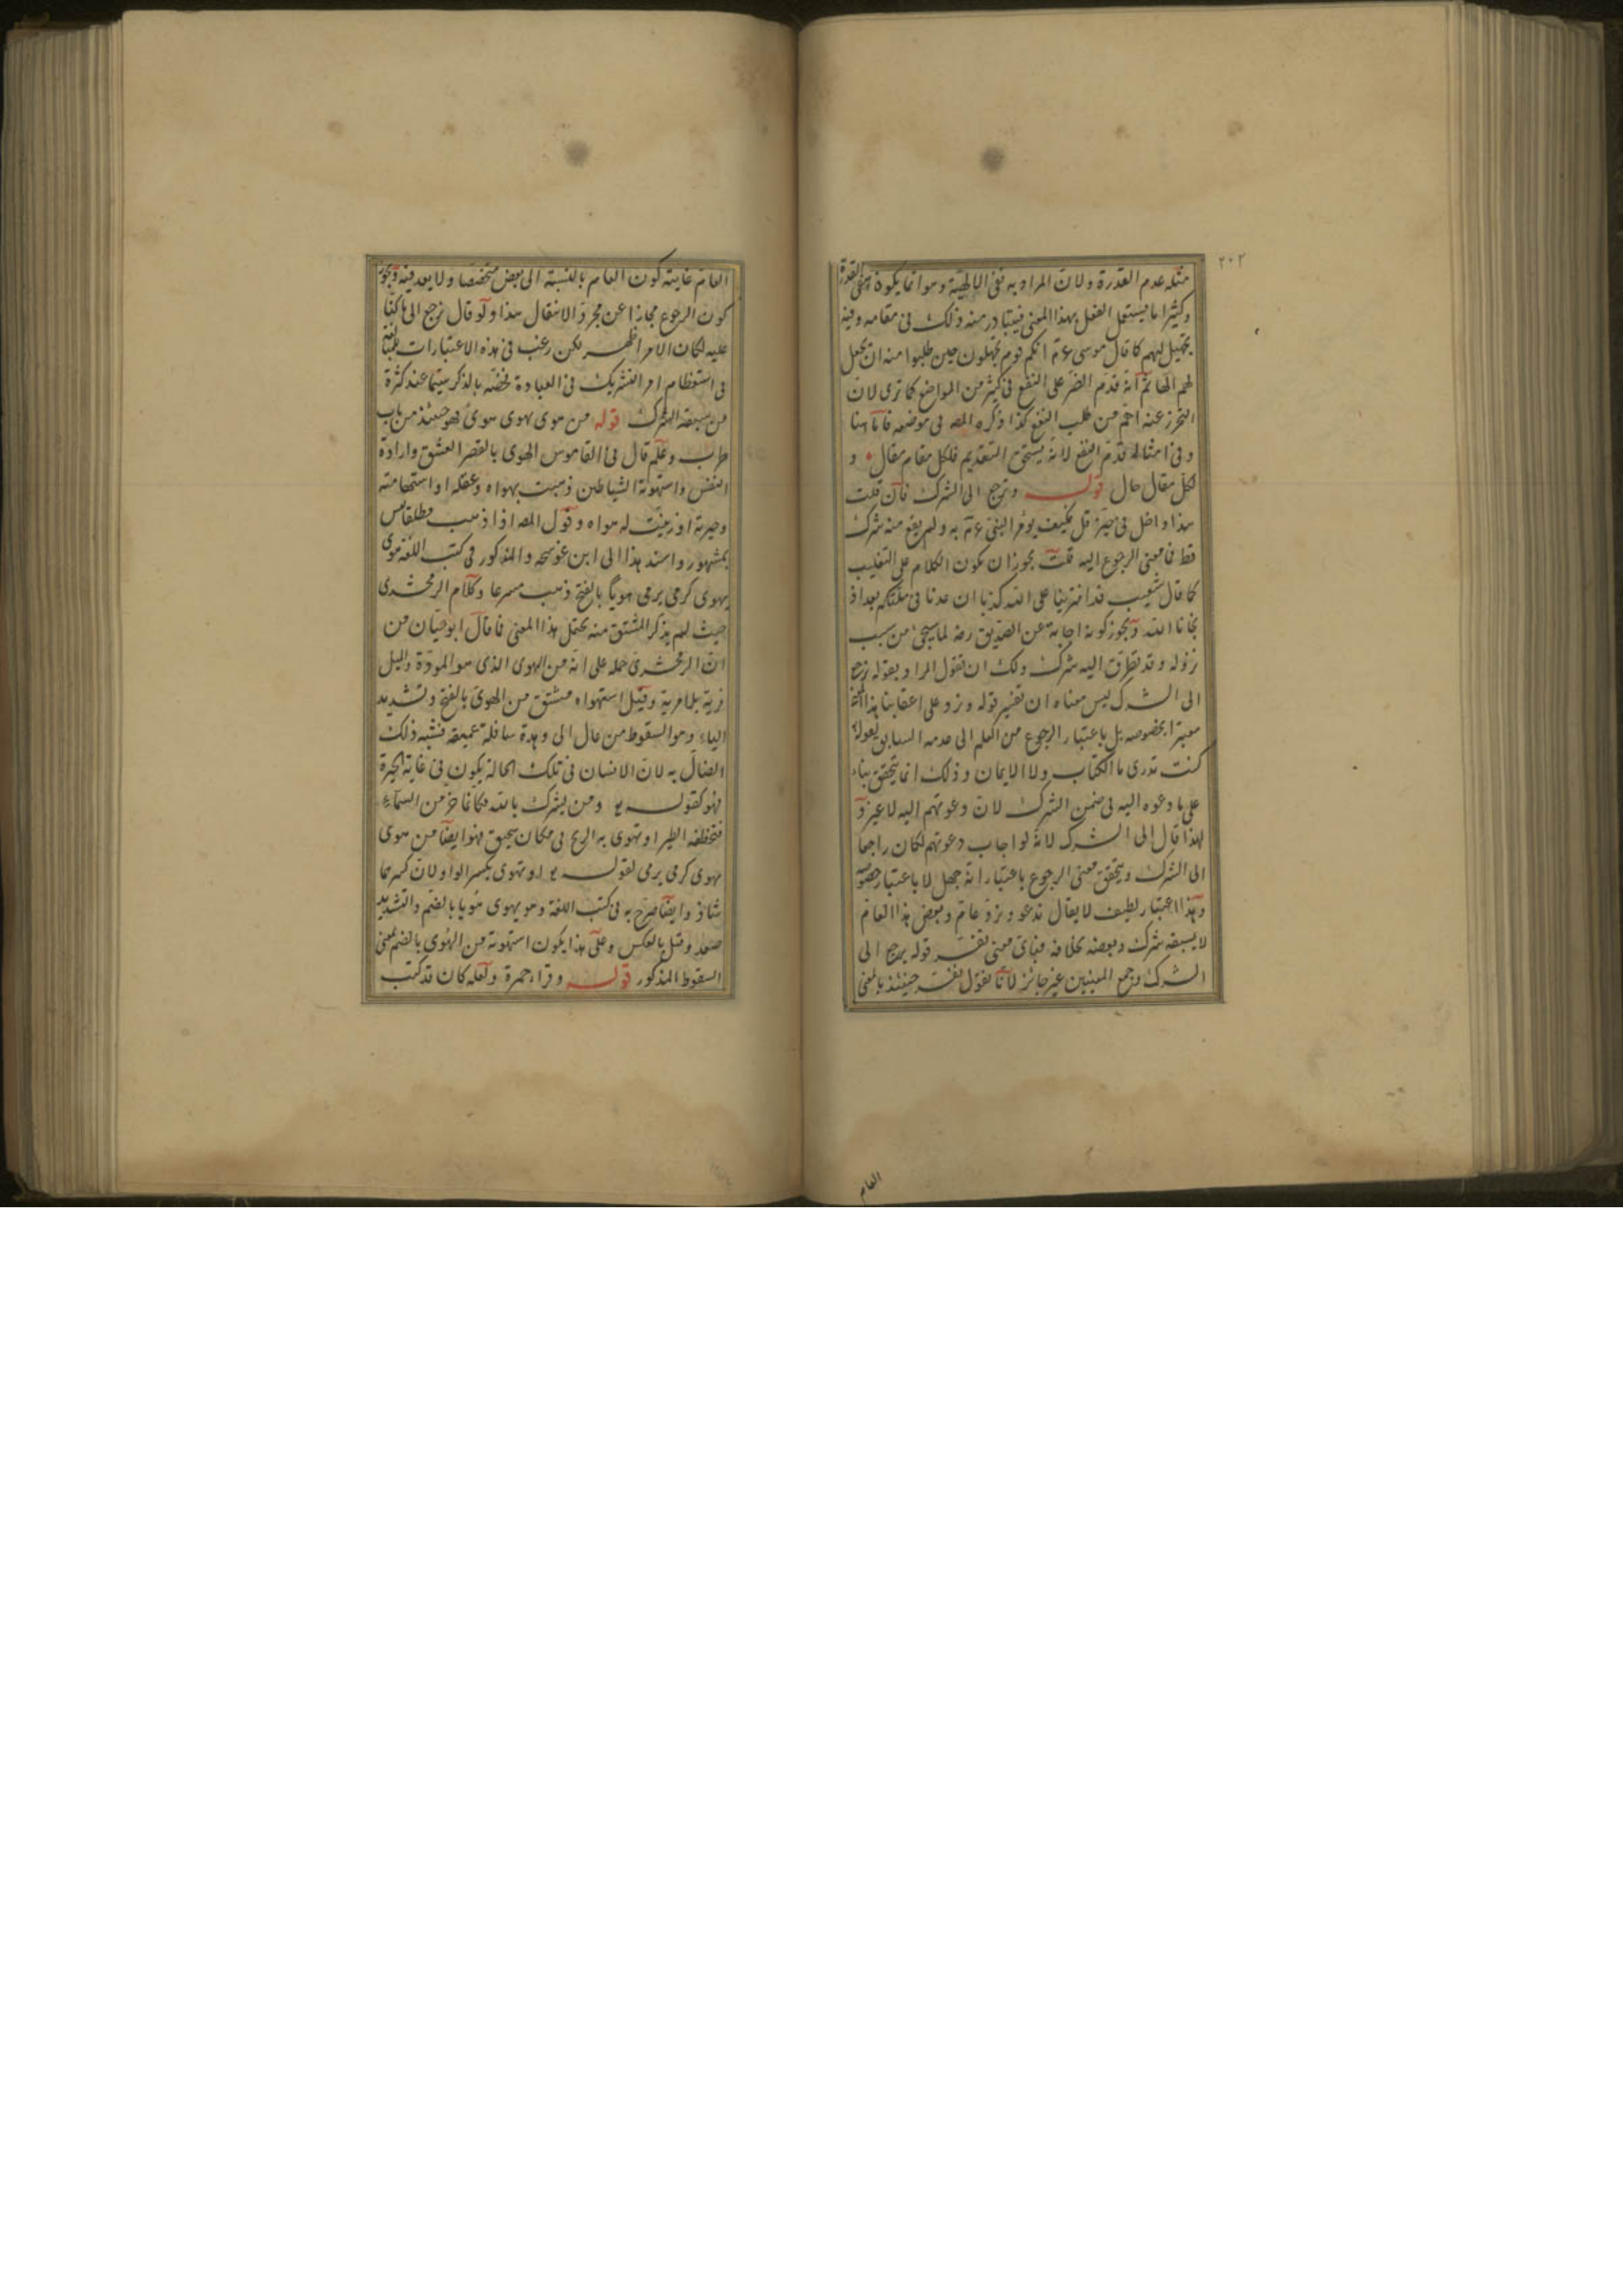 ٢٠٢
مثله عدم القدرة ولان المراد به نفى الالهية وهو انما يكون بنفى القدرة
وكثيرا ما يستعمل الفعل بهذا المعنى فيتبادر منه ذلك فى مقامه وفيه
تجهيل لهم كما قال موسى ع م انكم قوم تجهلون حين طلبوا منه ان يجعل
لهم الها ثم انه قدم الضر على النفع فى كثير من المواضع كما ترى لان
التحرز عنه اهم من طلب النفع كذا ذكره المص فى موضعه فاما هنا
وفى امثاله قدم النفع لانه يستحق التقديم فلكل مقام مقال و
لكل مقال حال قوله ونرجع الى الشرك فان قلت
هذا داخل فى حيز قل فكيف يؤمر النبى ع م به ولم يقع منه شرك
قط فما معنى الرجوع اليه قلت يجوز ان يكون الكلام على التغليب
كما قال شعيب قد افترينا على الله كذبا ان عدنا فى ملتكم بعد اذ
نجانا الله ويجوز كونه اجابة عن الصديق رضه لما سيجئ من سبب
نزوله وقد تطرق اليه شرك ولك ان تقول المراد بقوله نرجع
الى الشرك ليس معناه ان تفسير قوله ونرد على اعقابنا بهذا
معتبرا بخصوصه بل باعتبار الرجوع من العلم الى عدمه السابق لقوله ما
كنت تدرى ما الكتاب ولا الايمان وذلك انما يتحقق بناء
على ما دعوه اليه فى ضمن الشرك لان دعوتهم اليه لا غير و
لهذا قال الى الشرك لانه لو اجاب دعوتهم لكان راجعا
الى الشرك ويتحقق معنى الرجوع باعتبار انه جهل لا باعتبار خصوصه
وهذا اعتبار لطيف لا يقال ندعو ونرد عام وبعض هذا العام
لا يسبقه شرك وبعضه بخلافه فباى معنى تفسر قوله يرجع الى
الشرك وجمع المعنيين غير جائز لانا نقول نفسر حينئذ بالمعنى
العام
العام غايته كون العام بالنسبة الى بعض متخصصا ولا بعد فيه ويجوز
كون الرجوع مجازا عن مجرد الانتقال هذا ولو قال نرجع الى ما كنا
عليه لكان الامر اظهر لكن رغب فى هذه الاعتبارات للمبالغة
فى استعظام امر التشريك فى العبادة فخصه بالذكر سيما عند كثرة
من سبقه الشرك قوله من هوى يهوى هوى فهو حينئذ من باب
طرب وعلم قال فى القاموس الهوى بالقصر العشق وارادة
النفس واستهوته الشياطين ذهبت بهواه وعقله او استهامته
وحيرته او زينت له هواه وقول المص اذا ذهب مطلقا ليس
بمشهور واسند هذا الى ابن عوسجه والمذكور فى كتب اللغة هوى
يهوى كرمى يرمى هويا بالفتح ذهب مسرعا وكلام الزمخشرى
حيث لم يذكر المشتق منه يحتمل هذا المعنى فما قال ابو حيان من
ان الزمخشرى حمله على انه من الهوى الذى هو المودة والميل
فرية بلا مرية وقيل استهواه مشتق من الهوى بالفتح وتشديد
الياء وهو السقوط من عال الى وهدة سافلة عميقة فشبه ذلك
الضال به لان الانسان فى تلك الحالة يكون فى غاية الحيرة
فهو كقوله ومن يشرك بالله فكانما خر من السماء
فتخطفه الطير او تهوى به الريح فى مكان سحيق فهو ايضا من هوى
يهوى كرمى يرمى لقوله او تهوى بكسر الواو لان كسرهما
شاذ وايضا صرح به فى كتب اللغة وهو يهوى هويا بالضم والتشديد
صعد وقيل بالعكس وعلى هذا يكون استهوته من الهوى بالضم بمعنى
السقوط المذكور قوله وقراء حمزة ولعله كان قد كتب